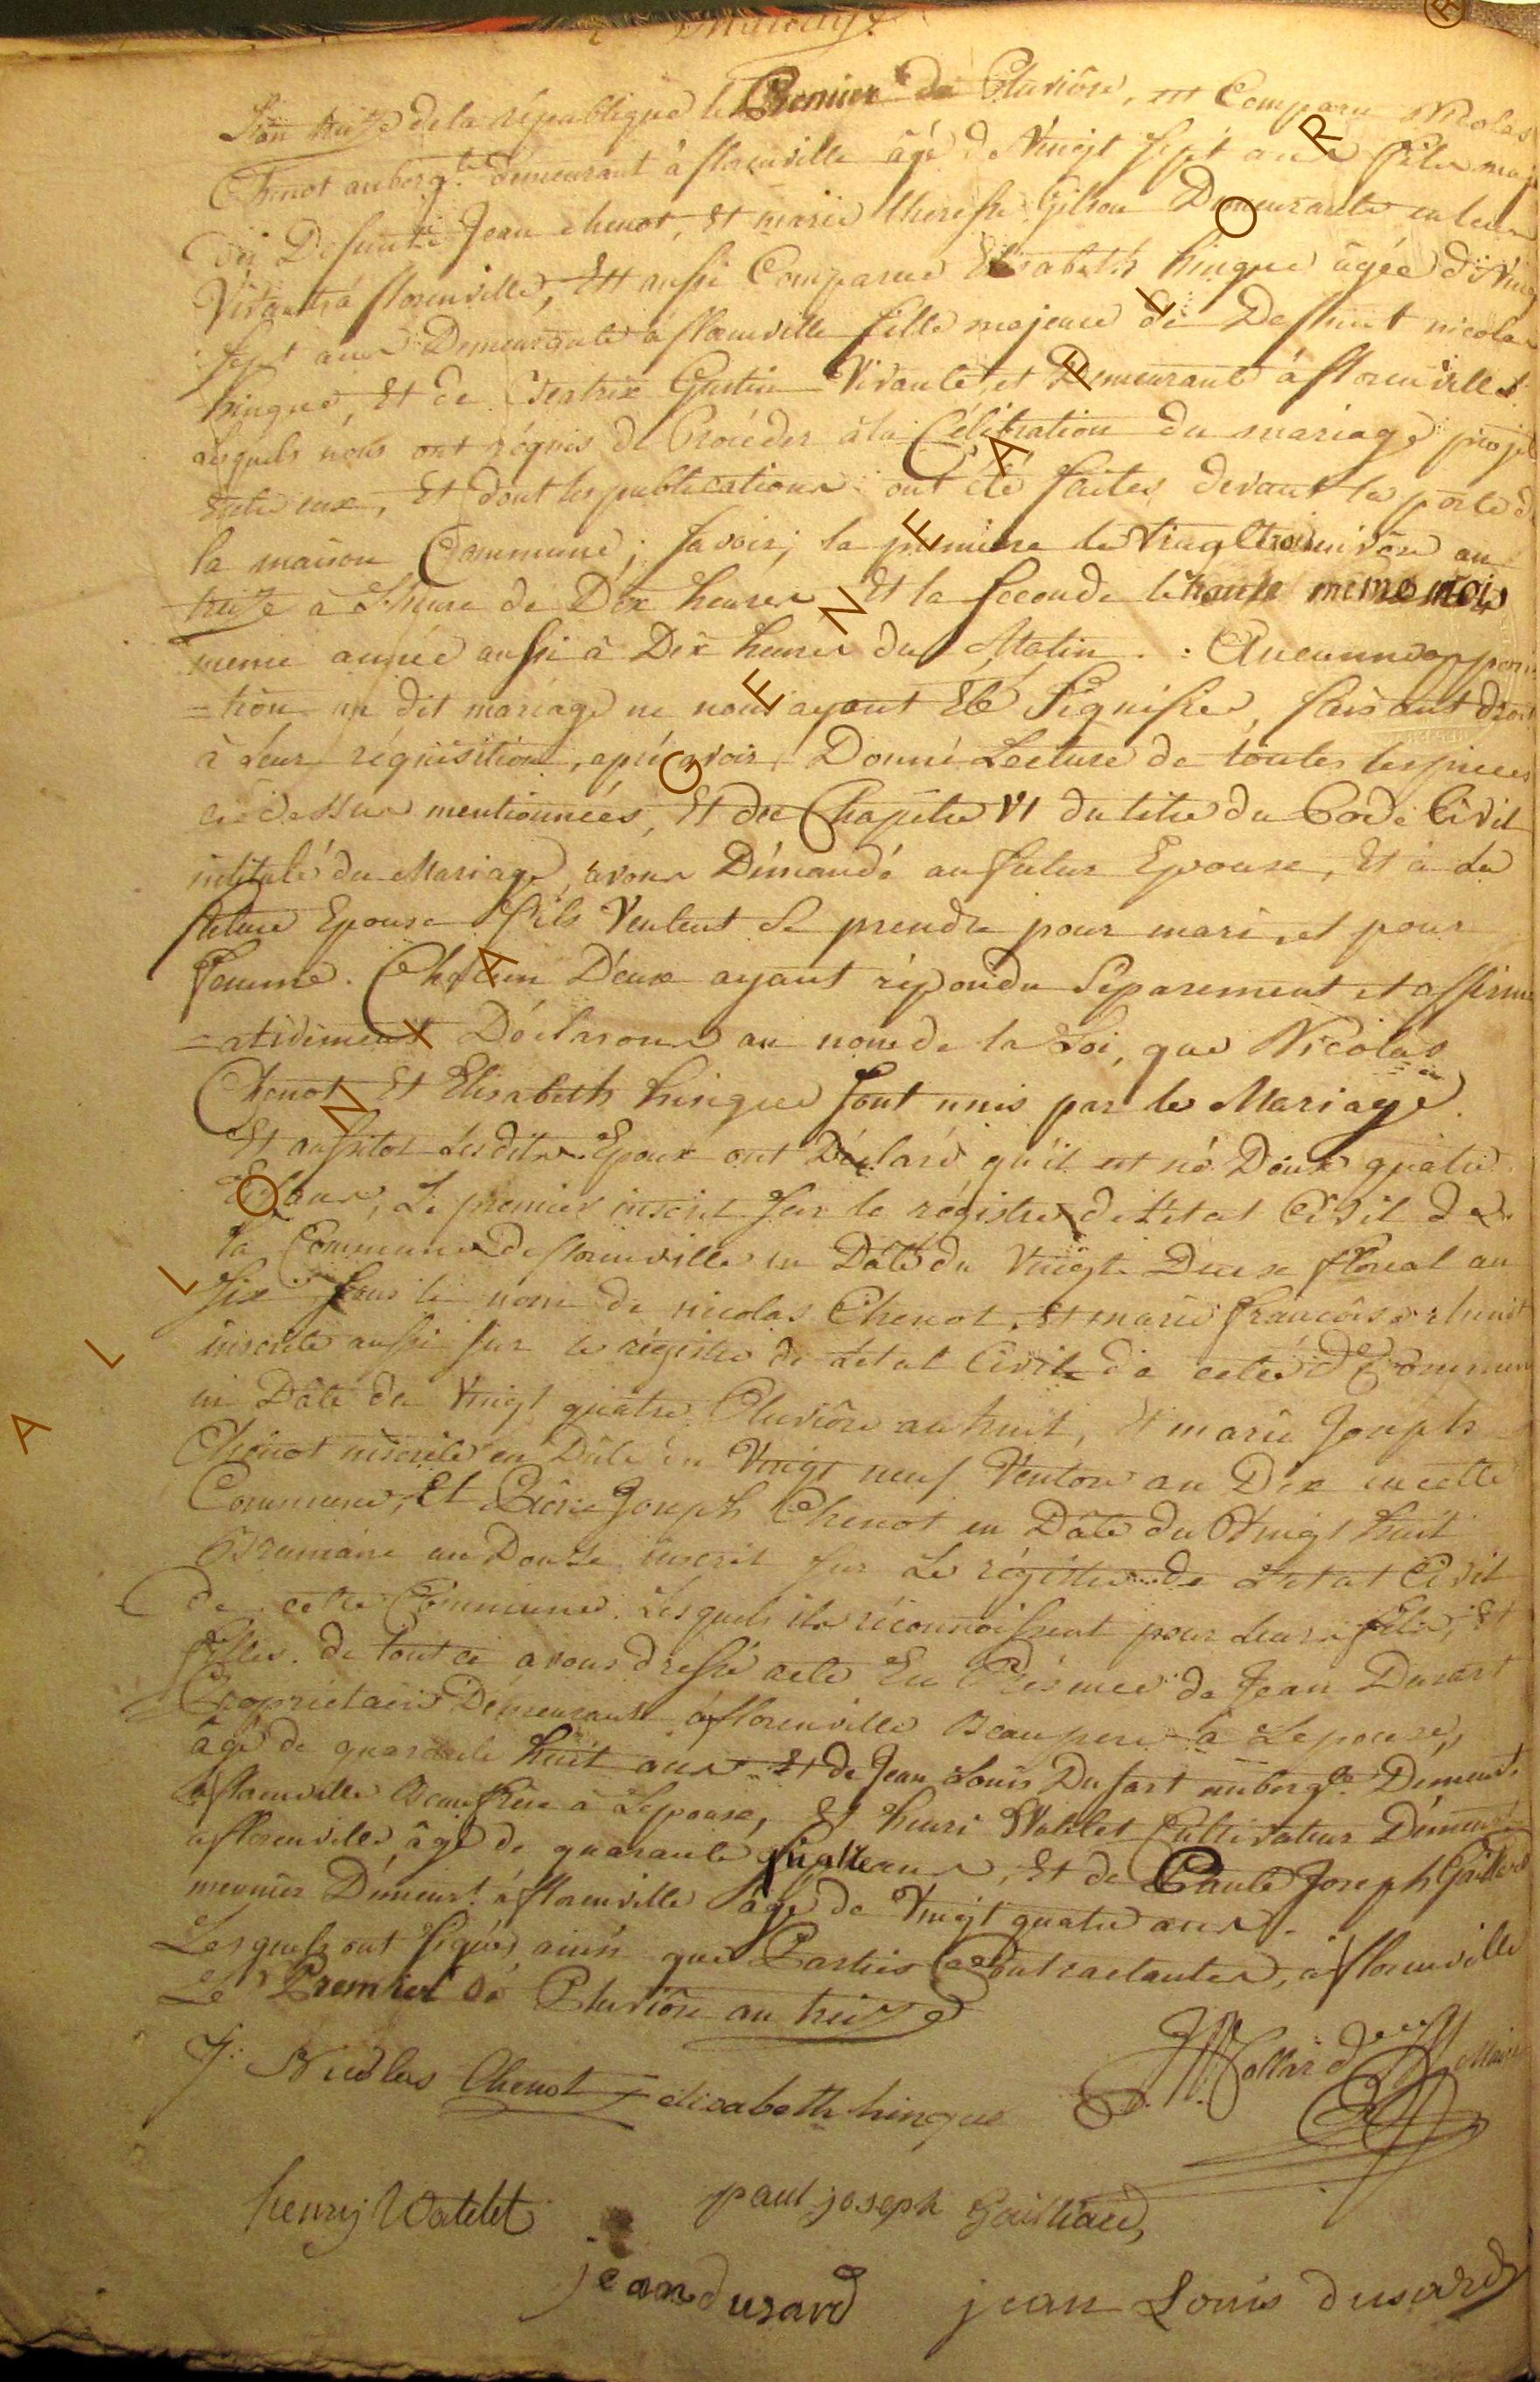 L'an treize de la république le Premier de Pluviôse, est Comparu Nicolas
Chenot auberg.te demeurant à florenville âgé de Vingt sept ans fils maj
des Defunts Jean chenot, et marie theresse Gilson Demeurante en leur
Vivants à florenville, Et aussi Comparue Elisabeth hingue âgée de Ving
sept ans Demeurante à florenville fille majeure de Deffunt nicolas
hingue, Et de Beatrix Gustin Vivante et Demeurante à florenville
Lesquels nous ont réquis de Procéder à la Célébration du mariage projet
entre eux, Et dont les publications ont été faites devant la porte d
la maison Commune; savoir; la premiere le Vingt trois nivôse an
treize à L'heure de Dix heures Et la seconde le trente même mois
meme année aussi à Dix heures du Matin. Aucunne opposi
=tion au dit mariage ne nous ayant Eté Signifiée, faisant droit
à Leur réquisition, après avoir Donné Lecture de toutes les pieces
cidessus mentionnées, Et du Chapitre VI du titre du Code Civil
intitulé du Mariage, avons Démandé au futur Epouse, Et à La
future Epouse s'ils Veulent Se prendre pour mari et pour
femme. Chacun D'eux ayant répondu Séparement et affirm
=ativement Déclarons au nom de la Loi, que Nicolas
Chenot Et Elisabeth hingue sont unis par le Mariage.
Et aussitot Lesdits Epoux ont Déclaré qu'il est né D'eux quatre
Enfans, Le premier inscrit sur le régistre de L'etat Civil de
la Commune de florenville en Dâte du Vingt Deux floréal an
Six sous le nom de nicolas Chenot, Et marie françoise chenot
inscrite aussi sur le régistre de L'etat Civil de cette d Commun
en Dâte du Vingt quatre Pluviôse an huit, Et marie Joseph
Chenot inscrite en Dâte du Vingt neuf Ventose an Dix en cette
Commune, Et Piére Joseph Chenot en Dâte du Vingt huit
Brumaire an Douze inscrit sur Le régistre de L'etat Civil
de cette Commune. Lesquels ils réconnoissent pour Leurs fils, Et
filles. de tout ce avons dressé acte En Présence de Jean Dusart
Propriétaire Démeurant à florenville Beaupere à Lepouse,
âgé de quarante huit ans Et de Jean Louis Dusart auberg.te Démeur.t
à florenville Beaufrere à Lepouse, Et henri Watelet Cultivateur Démeur
à florenville, âgé de quarante quatre ans, Et de Paule Joseph Gailliard
meunier Démeur.t à florenville âgé de Vingt quatre ans.
Lesquels ont signés ainsi que Parties Contractantes, à florenville
Le Premier de Pluviôse an treize
Nicolas Chenot elisabeth hingue Collard Maire
henry Watelet paul joseph Gailliard
jean dusard jean Louis dusard
ALLON AGENEALFLOR